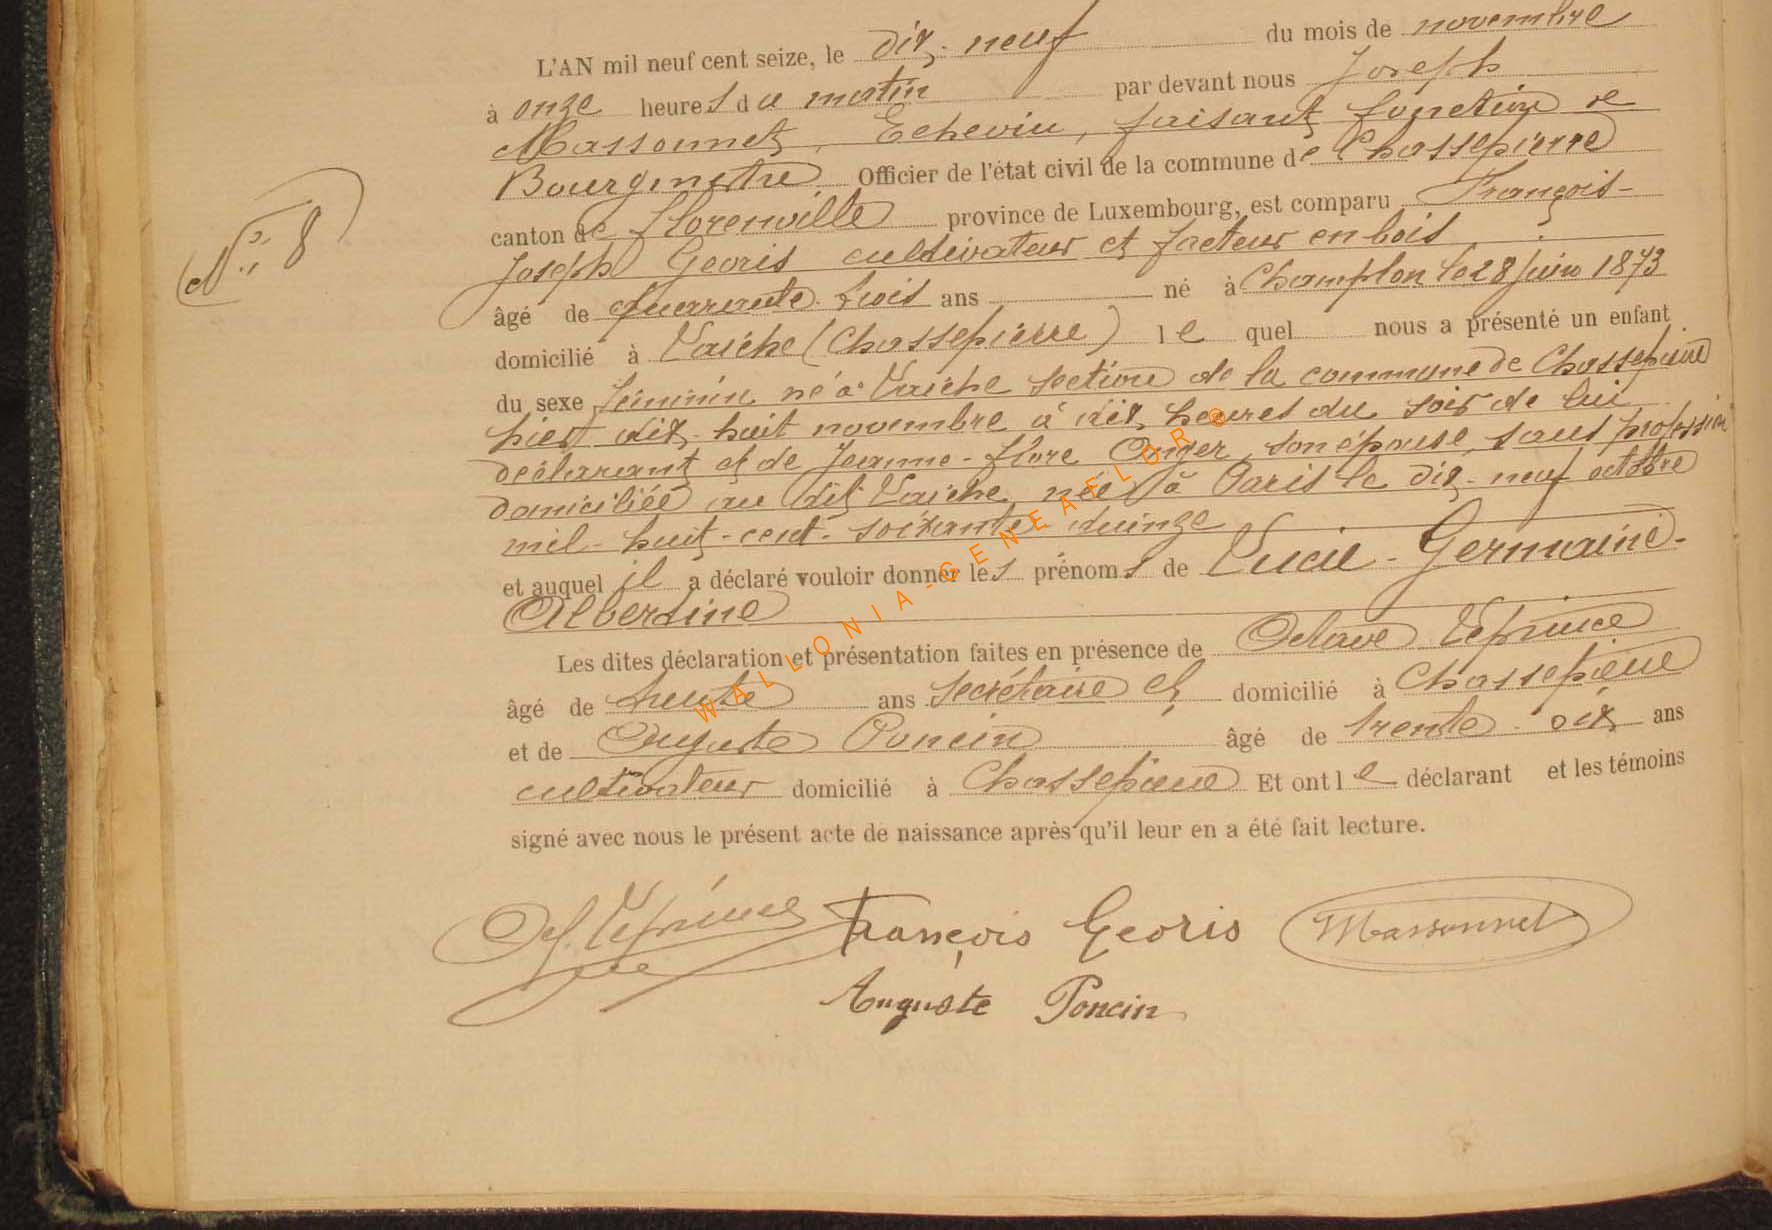 L'AN mil neuf cent seize, le dix-neuf du mois de novembre
à onze heures du matin par devant nous Joseph
Massonnet, Echevin, faisant fonction de
Bourgmestre Officier de l'état civil de la commune de Chassepierre
canton de Florenville province de Luxembourg, est comparu François-
Joseph Georis cultivateur et facteur en bois
âgé de quarante-trois ans né à Champlon le 28 juin 1873
domicilié à Laiche (Chassepierre) lequel nous a présenté un enfant
du sexe féminin né à Laiche section de la commune de Chassepierre
hier dix-huit novembre à dix heures du soir de lui
déclarant et de Jeanne-Flore Onger, son épouse, sans profession
domiciliée au dit Laiche, née à Paris le dix-neuf octobre
mil-huit-cent-soixante-quinze
et auquel il a déclaré vouloir donner les prénoms de Lucie-Germaine-
Albertine
Les dites déclaration et présentation faites en présence de Octave Leprince
âgé de trente ans secrétaire cl domicilié à Chassepierre
et de Auguste Poncin âgé de trente-six ans
cultivateur domicilié à Chassepierre Et ont le déclarant et les témoins
signé avec nous le présent acte de naissance après qu'il leur en a été fait lecture.
N° 8
Oct. Leprince François Georis Massonnet
Auguste Poncin
WALLONIA-GENEAFLOR©